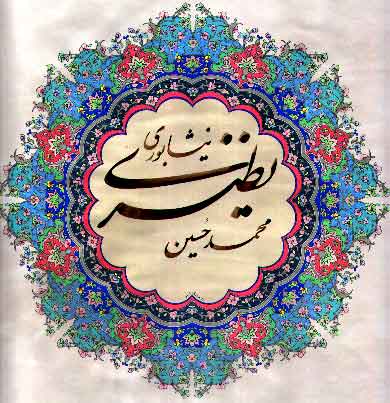 نیشابوری
نظیری
محمد حُسین